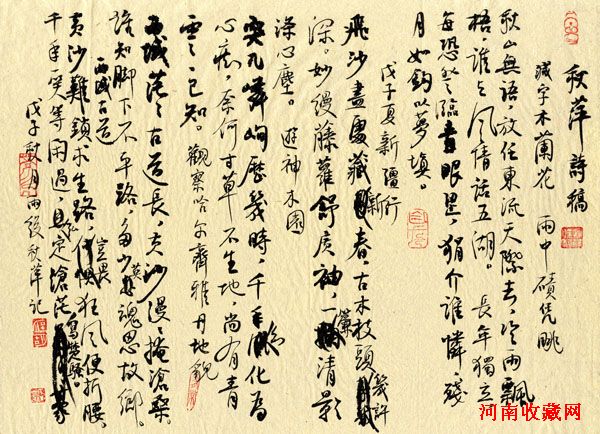 秋萍詩稿
减字木蘭花 雨中磧凭眺
秋山無語，放任東流天際去，冷雨飄
梧，誰與風情話五湖。長年獨立
每恐登臨青眼濕，狷介誰憐，殘
月如鈎以夢填。
戊子夏新疆行
飛沙盡處藏新春，古木枝頭幾許
深。妙縵藤蘿舒广袖，一簾清影
澡心塵。 游神木園
突兀嶙峋歷幾時，千年化為
心痴，奈何寸草不生地，尚有青
雲雲已知。觀察哈尔齊雅丹地貌
西域茫茫古道長，黄沙漫漫掩滄桑，
誰知脚下不平路，多少英魂思故鄉。
西域古道
黄沙難鎖求生路，豈畏狂風便折腰，
千年一笑等閑過，
戊子秋月雨後秋萍記
河南收藏网